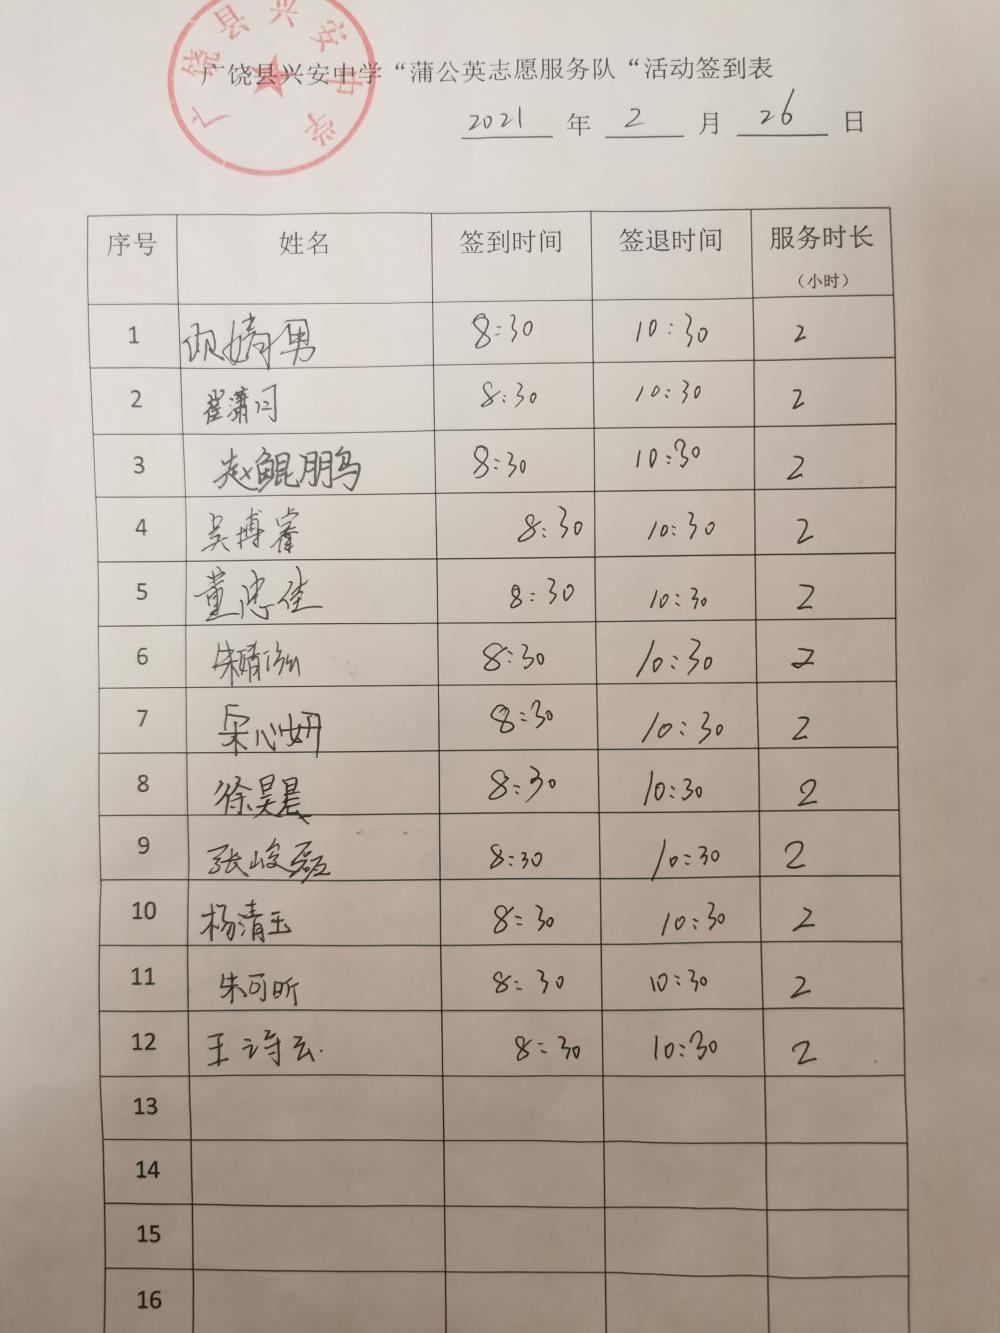 广饶县兴安中学
广饶县兴安中学“蒲公英志愿服务队“活动签到表
2021 年 2 月 26 日
序号 姓名 签到时间 签退时间 服务时长
（小时）
1 婧男 8:30 10:30 2
2 崔潇 8:30 10:30 2
3 赵鲲鹏 8:30 10:30 2
4 吴搏睿 8:30 10:30 2
5 董忠佳 8:30 10:30 2
6 朱晴泓 8:30 10:30 2
7 宋心妍 8:30 10:30 2
8 徐昊晨 8:30 10:30 2
9 张峻磊 8:30 10:30 2
10 杨清玉 8:30 10:30 2
11 朱可昕 8:30 10:30 2
12 王诗云 8:30 10:30 2
13
14
15
16